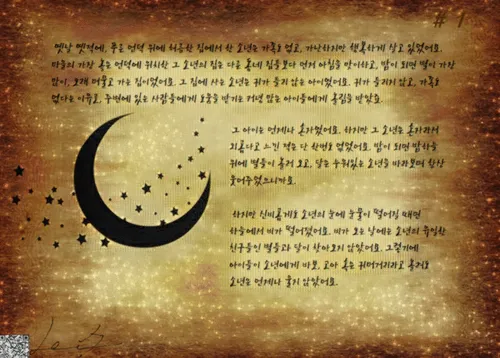 # 1
옛날 옛적에, 푸른 언덕 위에 허름한 집에서 한 소년는 가족도 없고, 가난하지만 행복하게 살고 있었어요.
마을의 가장 높은 언덕에 위치한 그 소년의 집은 다른 동네 집들보다 먼저 아침을 맞이하고, 밤이 되면 별이 가장
많이, 오래 머물고 가는 집이었어요. 그 집에 사는 소년는 귀가 들리지 않는 아이였어요. 귀가 들리지 않고, 가족도
없다는 이유로, 주변에 있는 사람들에게 도움을 받기는 커녕 많은 아이들에게 놀림을 받았죠.
그 아이는 언제나 혼자였어요. 하지만 그 소년은 혼자라서
외롭다고 느낀 적은 단 한번도 없었어요. 밤이 되면 밤하늘
위에 별들이 놀러 오고, 달은 수줍게 소년을 바라보며 항상
웃어주었으니까요.
하지만 신비롭게도 소년의 눈에 눈물이 떨어질 때면
하늘에서 비가 떨어졌어요. 비가 오는 날에는 소년의 유일한
친구들인 별들과 달이 찾아오지 않았어요. 그렇기에
아이들이 소년에게 바보, 고아 혹은 귀머거리라고 놀려도
소년은 언제나 울지 않았어요.